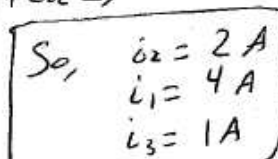 So, i₂ = 2 A
i₁ = 4 A
i₃ = 1 A